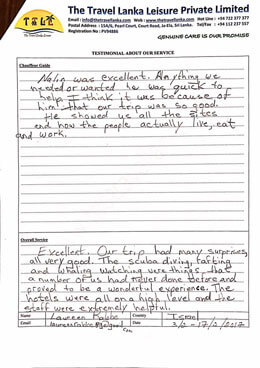 The Travel Lanka Leisure Private Limited
Email : info@thetravellanka.com Web : www.thetravellanka.com Hot Line : +94 722 377 377
Postal Address : 15A/5, Pearl Court, Court Road, Ja-Ela, Sri Lanka. Tel/Fax : +94 112 237 507
Registration No : PV94886
GENUINE CARE IS OUR PROMISE
TESTIMONIAL ABOUT OUR SERVICE
Chauffeur Guide
was excellent. Anything we
needed or wanted he was quick to
help I think it was because of
him that our trip was so good.
He showed us all the sites
and how the people actually live, eat
and work.
Overall Service
Excellent. Our trip had many surprises,
all very good. The scuba diving, rafting
and whaling watching were things that
a number of us had never done before and
proved to be a wonderful experience. The
hotels were all on a high level and the
staff were extremely helpful.
Name Laureen Country Israel
Email Date